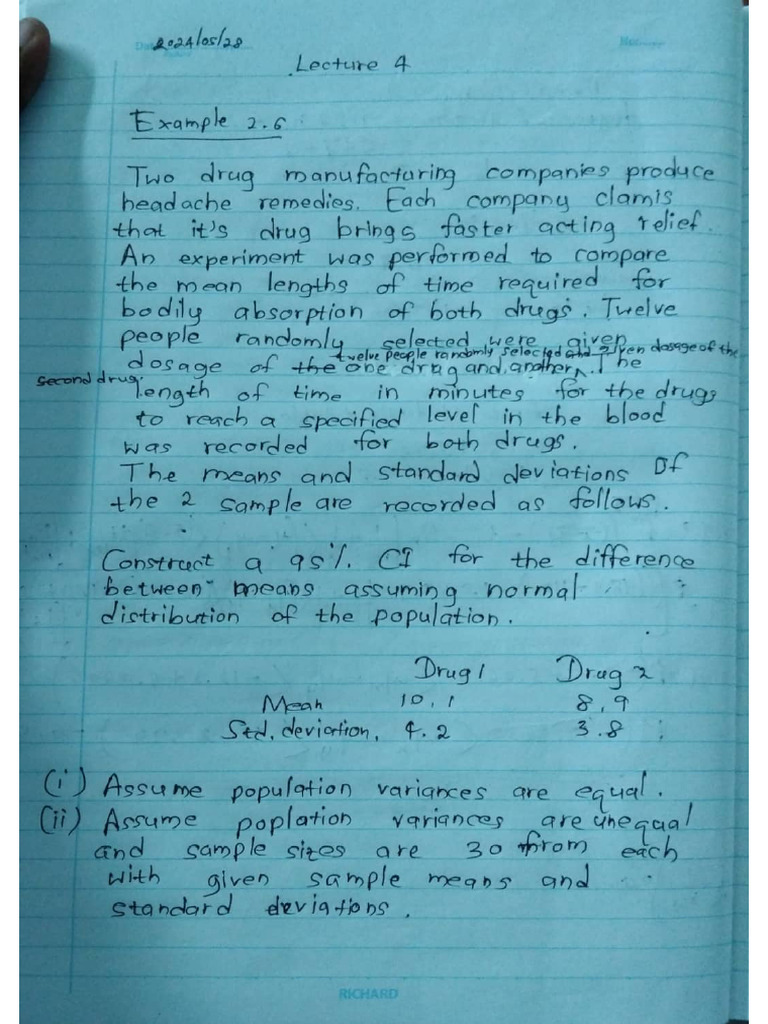 2024/05/28
Lecture 4
Example 2.6
Two drug manufacturing companies produce
headache remedies. Each company clamis
that it's drug brings faster acting relief.
An experiment was performed to compare
the mean lengths of time required for
bodily absorption of both drugs. Twelve
people randomly selected were given
twelve people randomly selected and given dosage of the
dosage of the one drug and another. The
second drug.
length of time in minutes for the drugs
to reach a specified level in the blood
was recorded for both drugs.
The means and standard deviations of
the 2 sample are recorded as follows.
Construct a 95%. CI for the difference
between means assuming normal
distribution of the population.
Drug 1 Drug 2
Mean 10,1 8,9
Std. deviation, 4.2 3.8
(i) Assume population variances are equal.
(ii) Assume poplation variances are unequal
and sample sizes are 30 from each
with given sample means and
standard deviations.
RICHARD